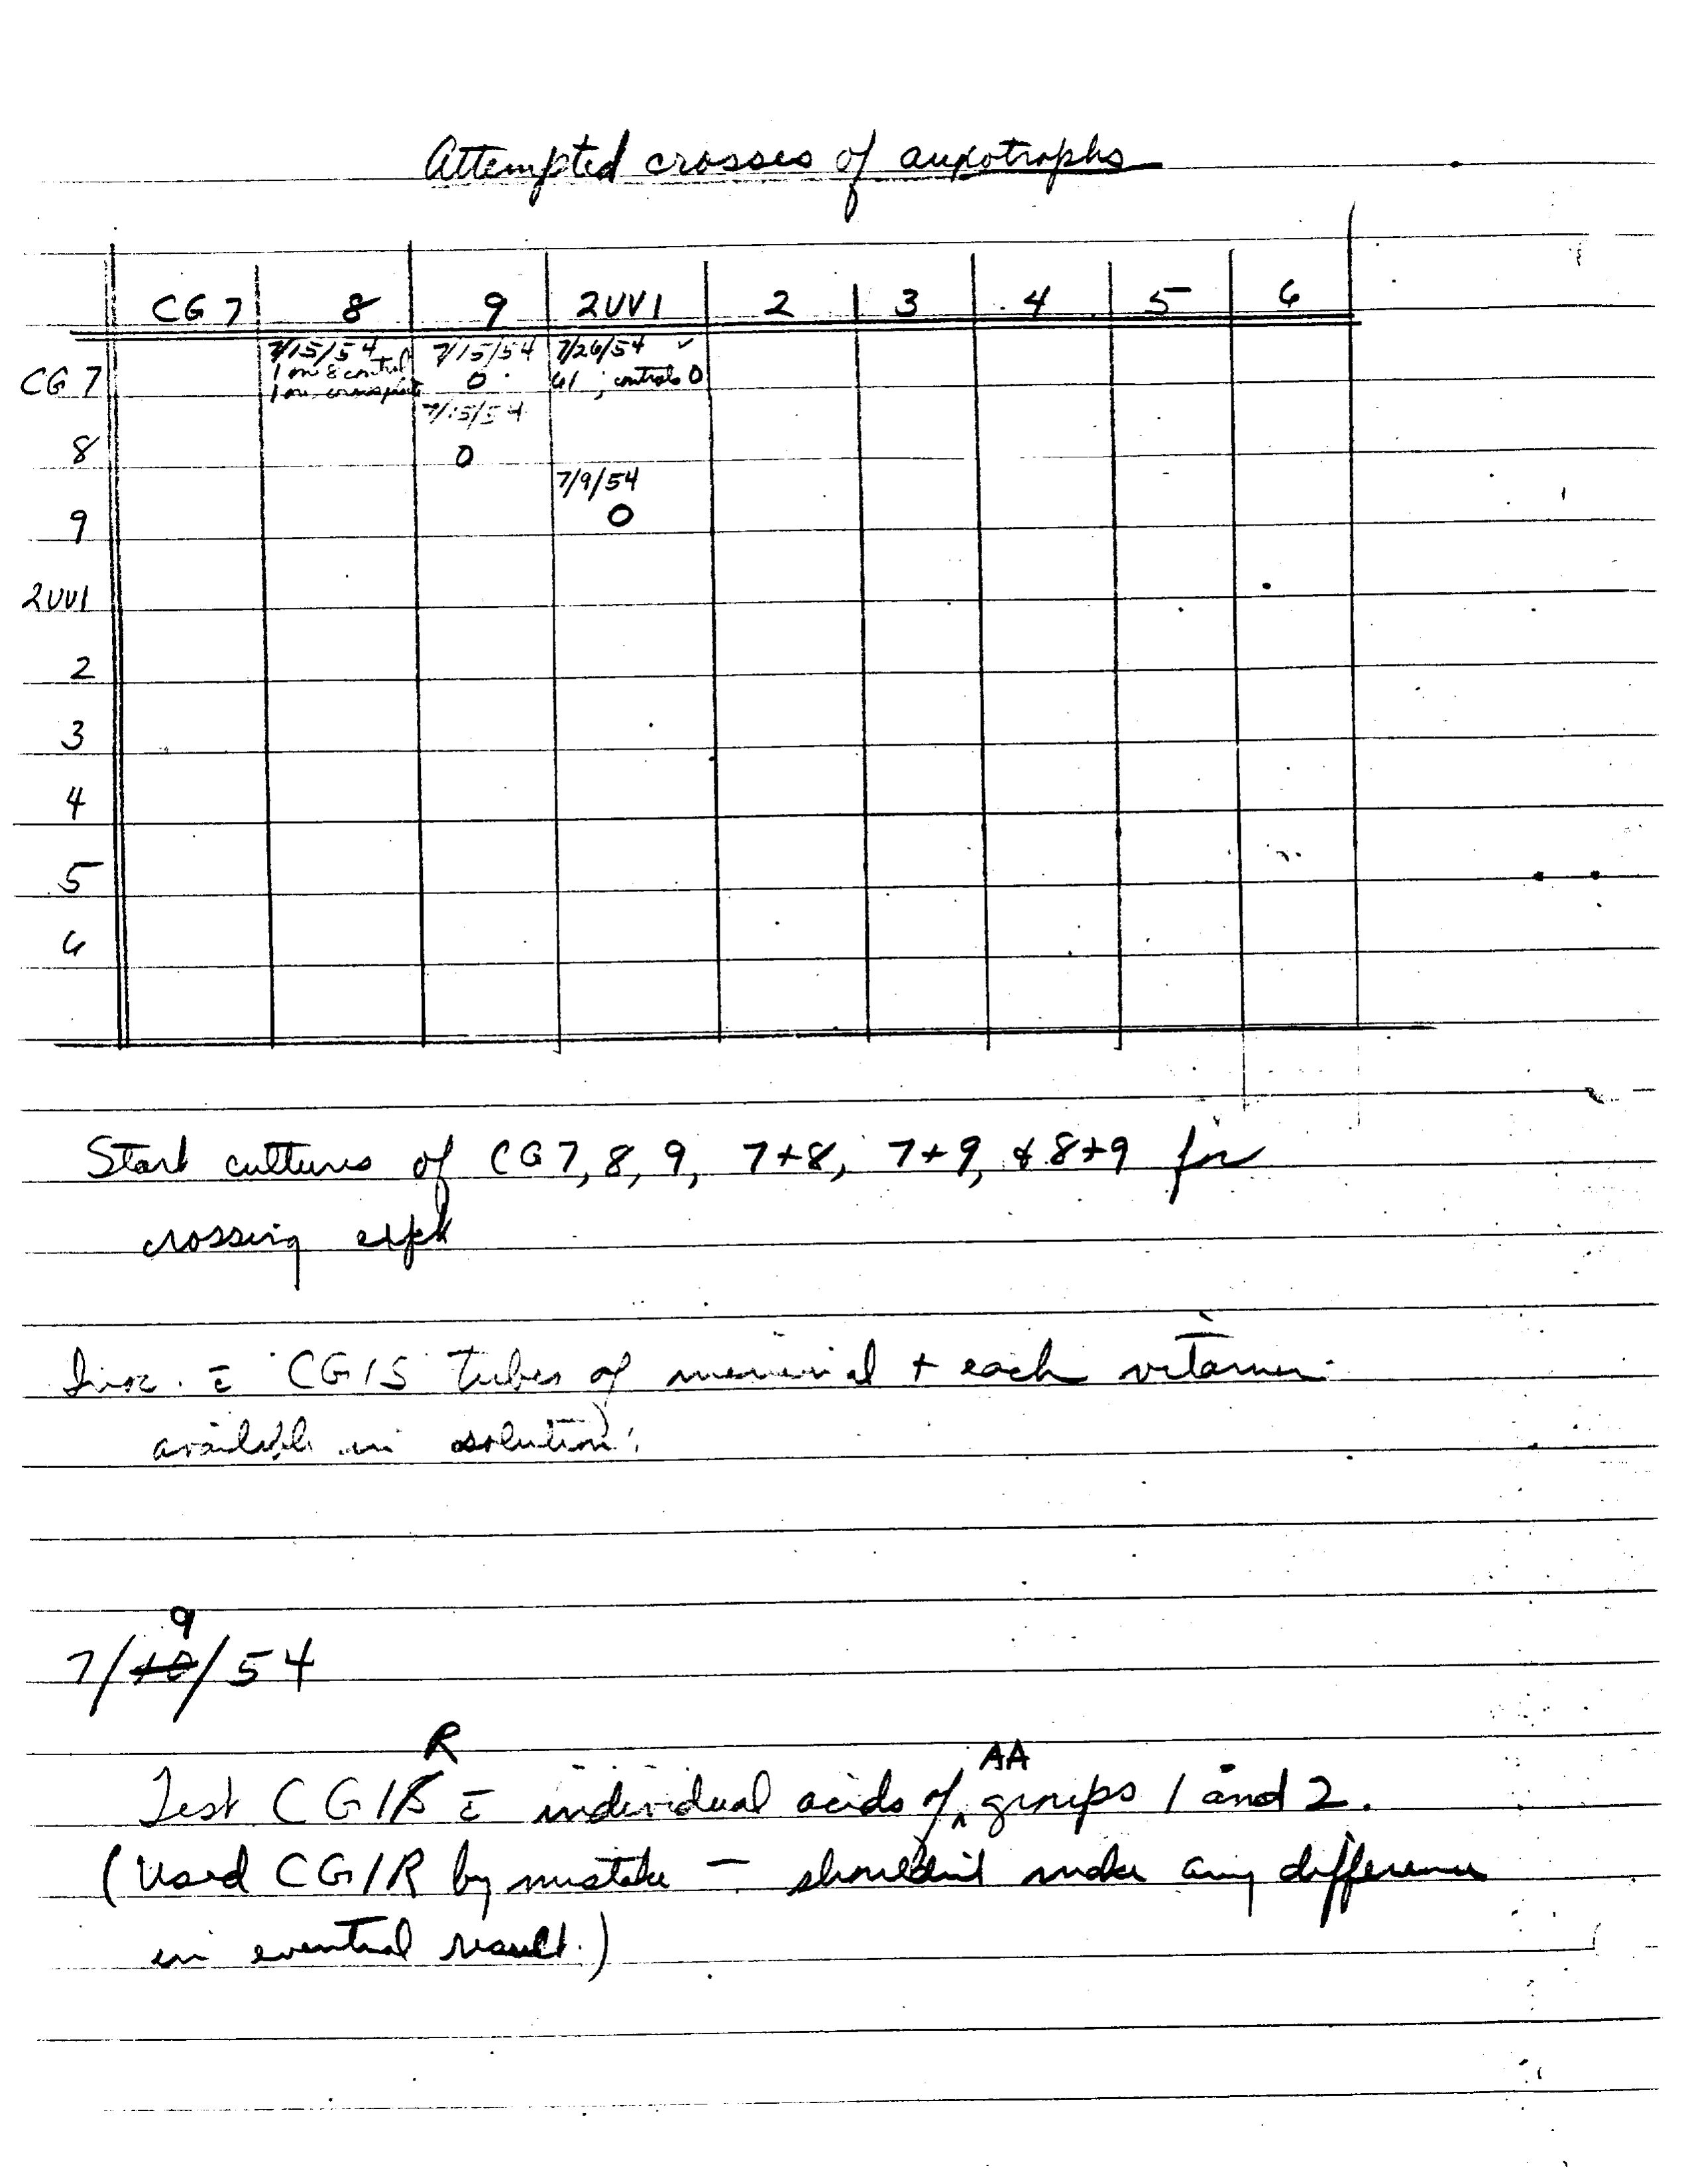 Attempted crosses of auxotrophs
CG 7 8 9 2UV1 2 3 4 5 6
CG 7 7/15/54 7/15/54 7/26/54 ✓
1 on 8 control 0 61 ; controls 0
1 on cross plate
7/15/54
8 0
7/9/54
9 0
2UV1
2
3
4
5
6
Start cultures of CG7, 8, 9, 7+8, 7+9, & 8+9 for
crossing expt
Inoc. c̄ CG15 tubes of minimal + each vitamin
available in solution.
9
7/10/54
R AA
Test CG1S c̄ individual acids of ^ groups 1 and 2.
(Used CG1R by mistake — shouldn't make any difference
in eventual result.)